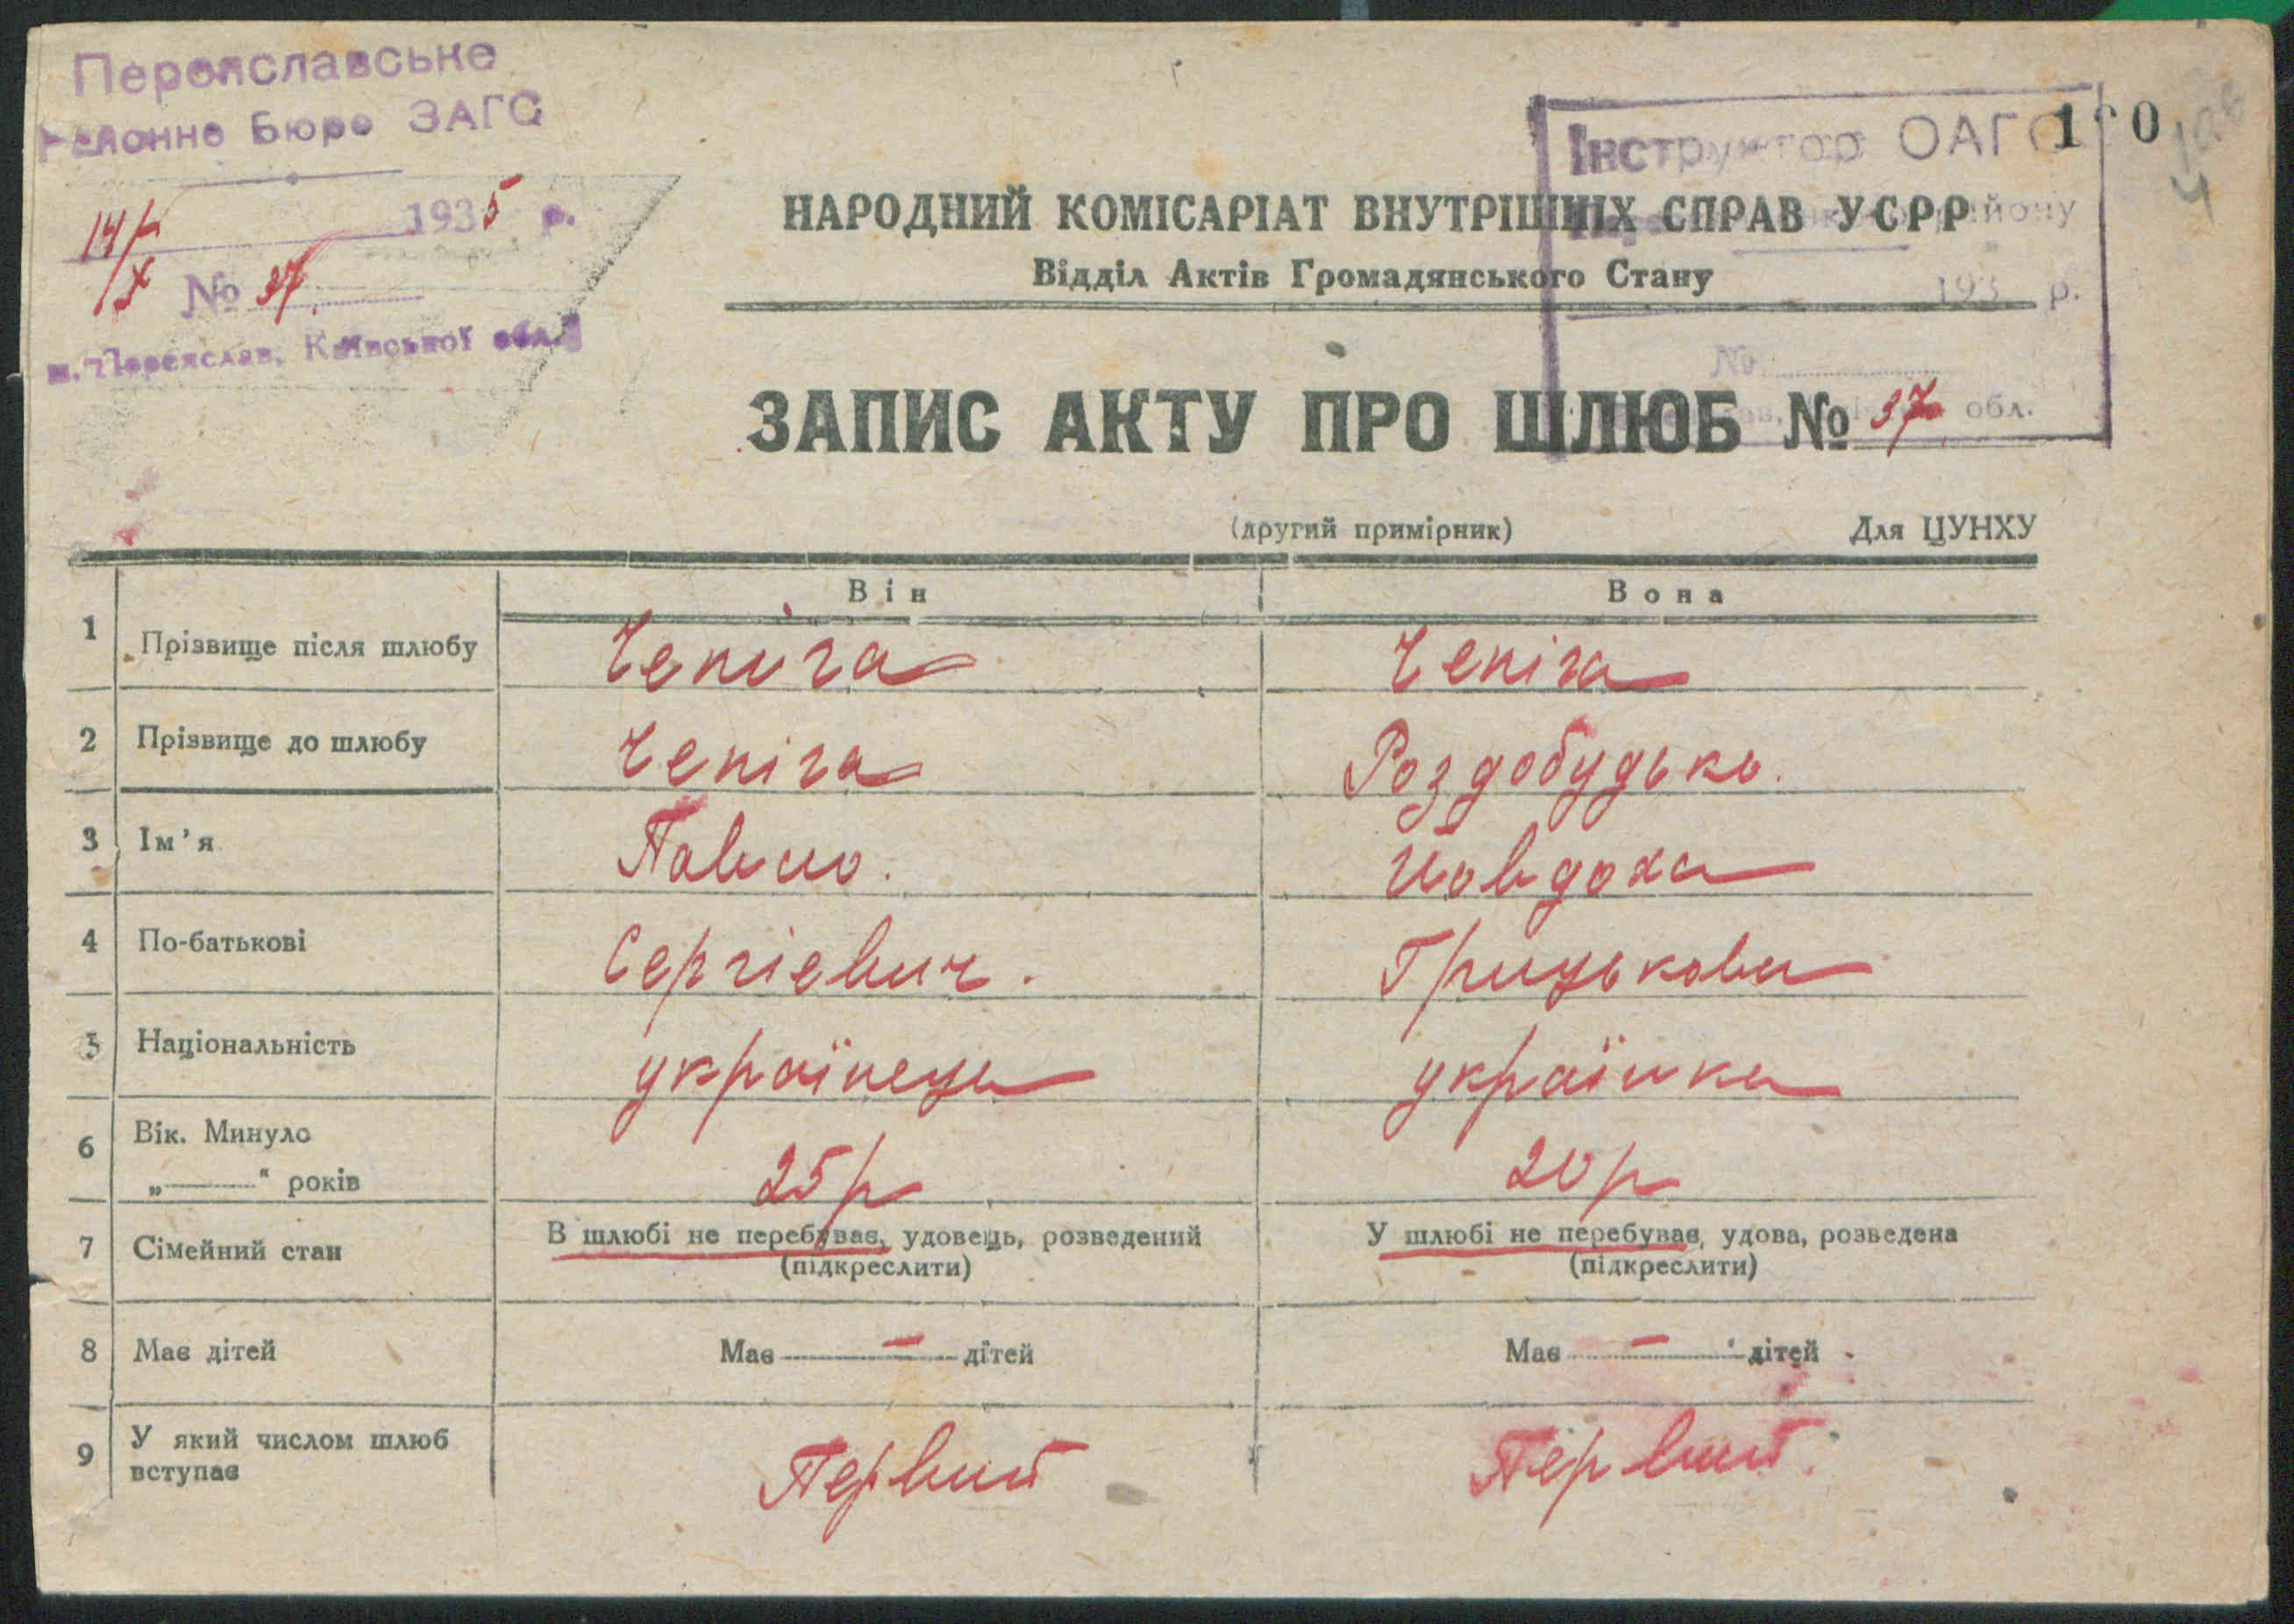 Переяславське
Районне Бюро ЗАГС
14/X 1935 р.
№ 37
м. Переяслав, Київської обл.
Інструктор ОАГС
району
193 р.
№
обл.
НАРОДНИЙ КОМІСАРІАТ ВНУТРІШНІХ СПРАВ УСРР
Відділ Актів Громадянського Стану
ЗАПИС АКТУ ПРО ШЛЮБ № 37
(другий примірник) Для ЦУНХУ
Він Вона
1 Прізвище після шлюбу Чепіга Чепіга
2 Прізвище до шлюбу Чепіга Роздобудько.
3 Ім'я Павло. Йовдоха
4 По-батькові Сергієвич. Грицькова
5 Національність українець українка
6 Вік. Минуло
„ “ років 25р 20р
7 Сімейний стан В шлюбі не перебуває, удовець, розведений У шлюбі не перебуває, удова, розведена
(підкреслити) (підкреслити)
8 Має дітей Має — дітей Має — дітей
9 У який числом шлюб
вступає Первий Первий.